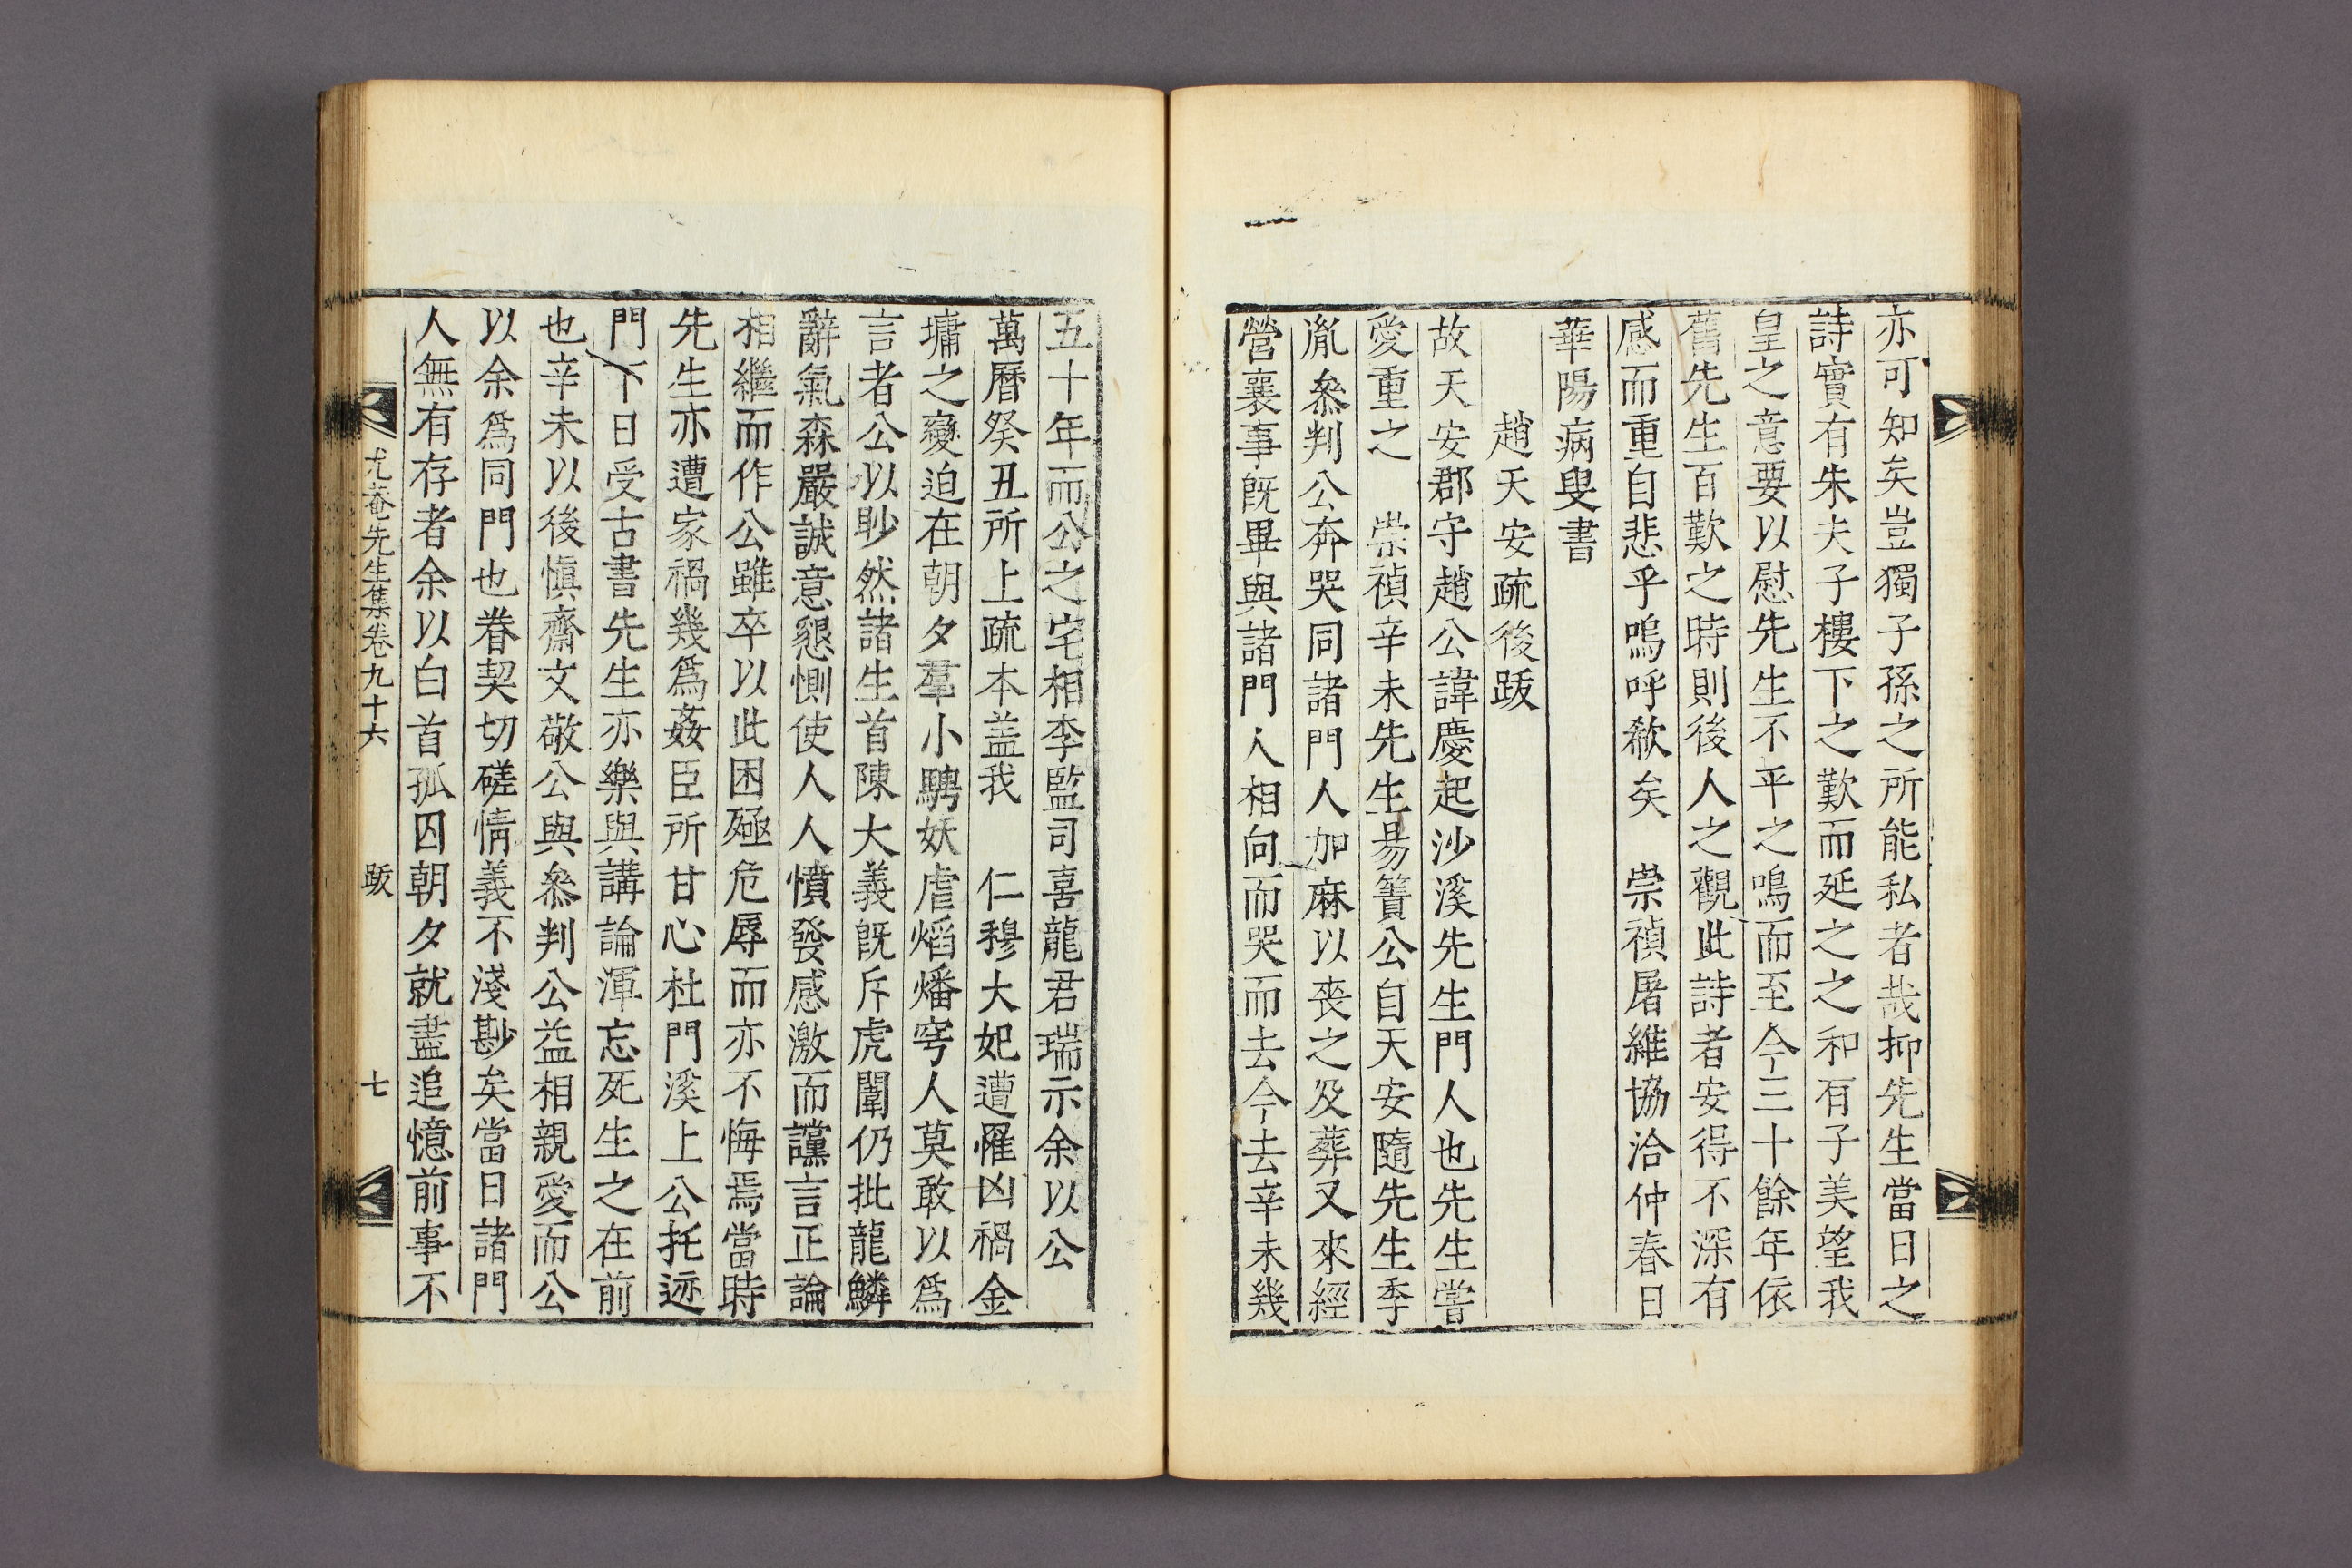 亦可知矣豈獨子孫之所能私者哉抑先生當日之
詩實有朱夫子樓下之歎而延之之和有子美望我
皇之意要以慰先生不平之鳴而至今三十餘年依
舊先生百歎之時則後人之觀此詩者安得不深有
感而重自悲乎嗚呼欷矣 崇禎屠維協洽仲春日
華陽病叟書
趙天安疏後跋
故天安郡守趙公諱慶起沙溪先生門人也先生嘗
愛重之 崇禎辛未先生易簀公自天安隨先生季
胤叅判公奔哭同諸門人加麻以喪之及葬又來經
營襄事旣畢與諸門人相向而哭而去今去辛未幾
五十年而公之宅相李監司喜龍君瑞示余以公
萬曆癸丑所上疏本盖我 仁穆大妃遭罹凶禍金
墉之變迫在朝夕羣小騁妖虐熖燔穹人莫敢以爲
言者公以眇然諸生首陳大義旣斥虎闈仍批龍鱗
辭氣森嚴誠意懇惻使人人憤發感激而讜言正論
相繼而作公雖卒以此困殛危辱而亦不悔焉當時
先生亦遭家禍幾爲姦臣所甘心杜門溪上公托迹
門下日受古書先生亦樂與講論渾忘死生之在前
也辛未以後愼齋文敬公與叅判公益相親愛而公
以余爲同門也眷契切磋情義不淺尠矣當日諸門
人無有存者余以白首孤囚朝夕就盡追憶前事不
尤菴先生集卷九十六 跋 七